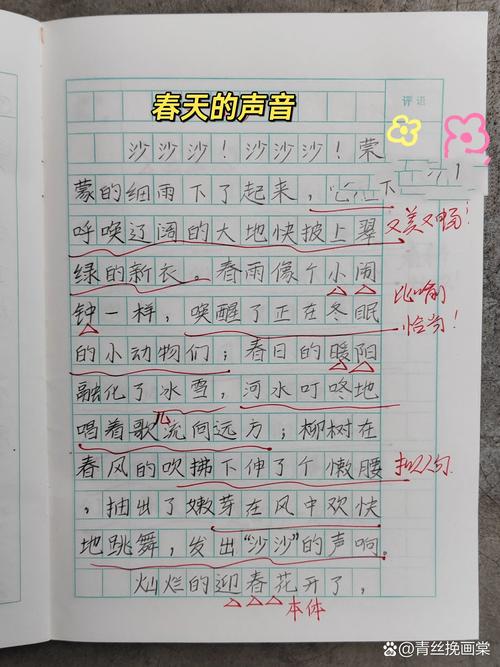 春天的声音
评语
沙沙沙！沙沙沙！蒙
蒙的细雨下了起来，它在
呼唤辽阔的大地快披上翠
又美又畅！
绿的新衣。春雨像个小闹
钟一样，唤醒了正在冬眠
比喻
恰当！
的小动物们；春日的暖阳
融化了冰雪，河水叮咚地
唱着歌流向远方；柳树在
儿
春风的吹拂下伸了个懒腰
拟人句
，抽出了嫩芽在风中欢快
地跳舞，发出“沙沙”的声响。
灿烂的迎春花开了，
本体
百家号/青丝挽画棠